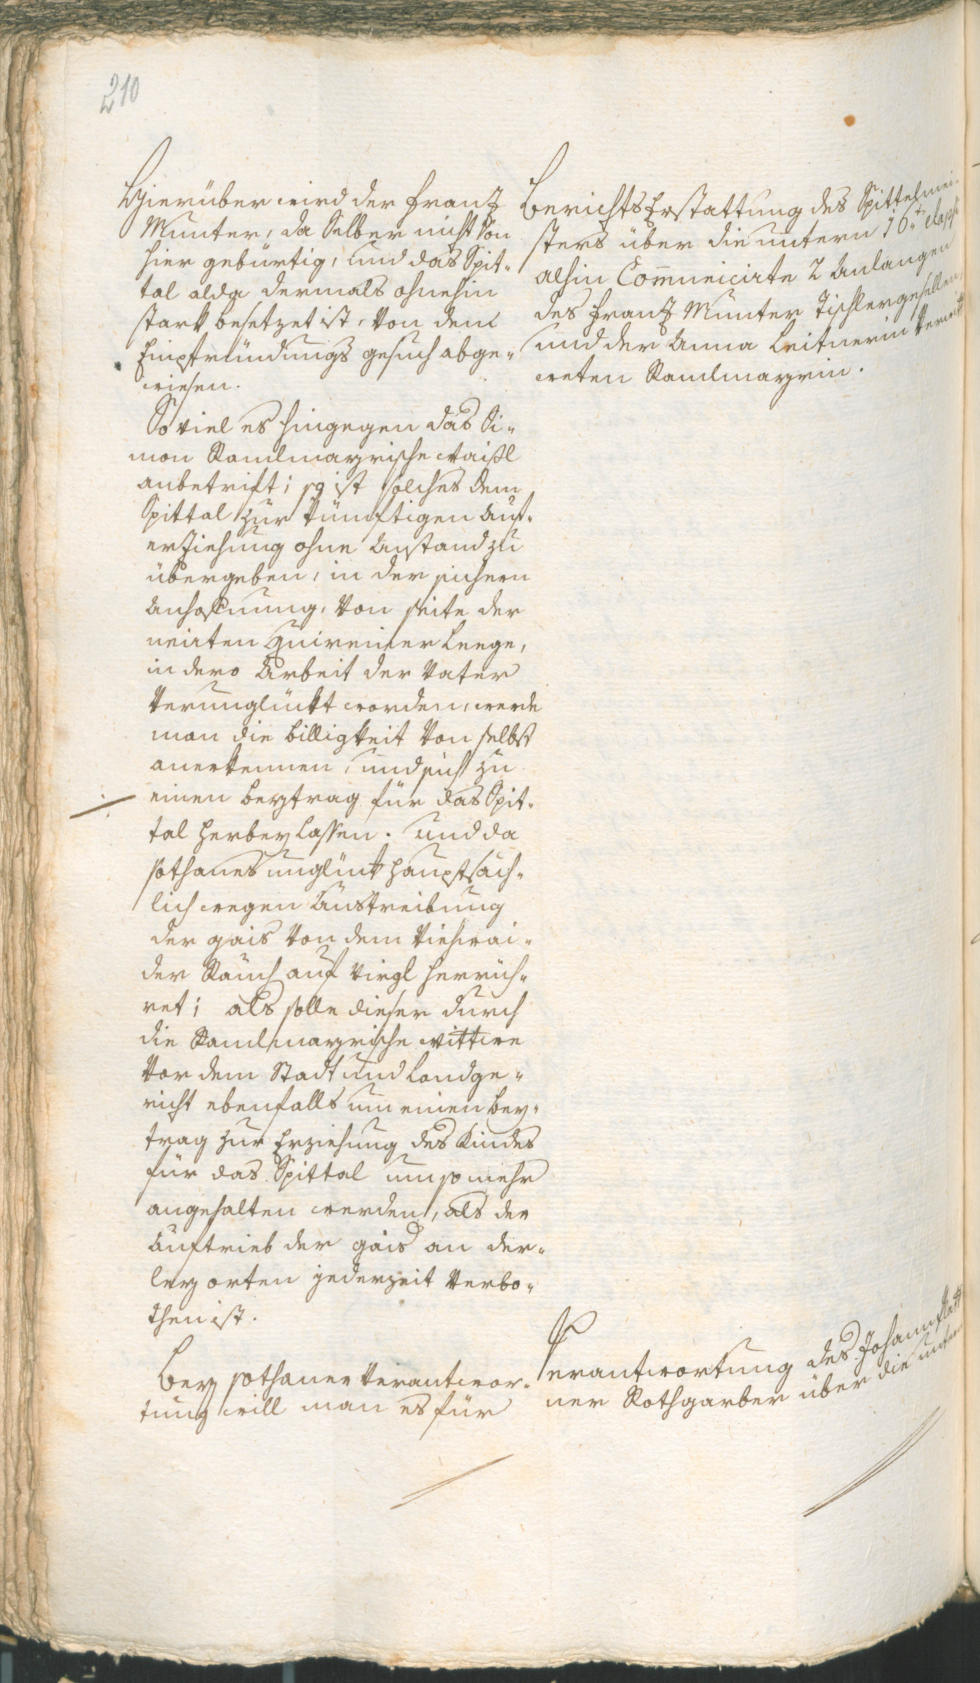 210
Hierüber wird der Franz
Munter, da Selber nicht von
hier gebürtig, und das Spit-
tal alda dermals ohnehin
stark besetzet ist, von dem
Einpfründungs gesuch abge-
wiesen.
So viel es hingegen das Si-
mon Ramlmayrische waißl
anbetrift; so ist solches dem
Spittal zur künftigen Auf-
erziehung ohne Anstand zu
übergeben, in der sichern
Anhofnung, von seite der
neuen Quirainer Leege,
in dero Arbeit der Vater
Verunglückt worden, werde
man die billigkeit von selbst
anerkennen, und sich zu
einen beytrag für das Spit-
tal herbey lassen. und da
sothanes unglück hauptsäch-
lich wegen Austreibung
der gais von dem Viehwai-
der Rauch auf Virgl herrüh-
ret; als solle dieser durch
die Ramlmayrische wittwe
vor dem Stadt und Landge-
richt ebenfalls um einen bey-
trag zur Erziehung des Kindes
für das Spittal um so mehr
angehalten werden, als der
Auftrieb der gais an der-
ley orten jederzeit verbo-
then ist.
Bey sothaner verantwor-
tung will man es für
Berichts Erstattung des Spittelmei-
sters über die unterm 16t elapsi
alhin Communicirte 2 Anlangen
des Franz Munter Tischlergesellen,
und der Anna Leitnerin verwitt-
weten Ramlmayrin.
Verantwortung des Johann Platt-
ner Rothgarber über die unterm